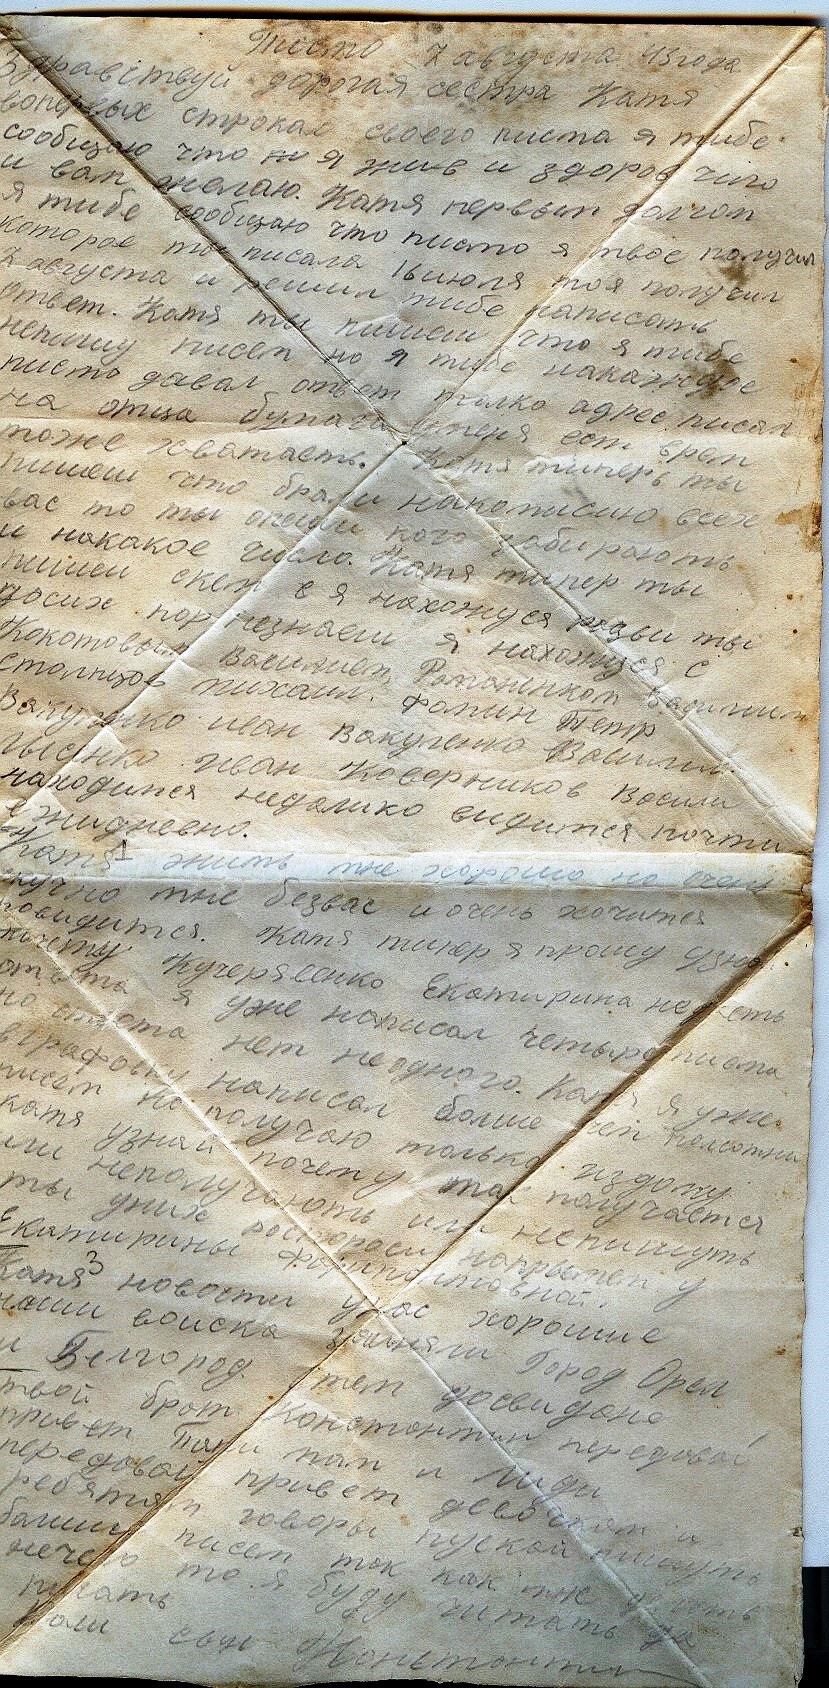 Писмо 7 августа 43 года
Здравствуй дорогая сестра Катя
вопервых строкам своего писма я тибе
сообщаю что я жив и здоров чиго
и вам желаю. Катя первым долгом
я тибе сообщаю что писмо я твое получил
которое ты писала 16 июля тоя получил
7 августа и решил тибе написать
ответ. Катя ты пишеш что я тибе
непишу писем но я тибе накаждое
писмо давал ответ толко адрес писал
на отца бумага уменя ест врем
тоже хватаеть. Катя типерь ты
пишеш что брали накомисию всех
вас то ты опиши кого забирають
и накакое число. Катя типер ты
пишеш скем я нахожуся разви ты
досих пор незнаеш я нахожуся с
Кокотовым Василием, Романенком Василием
Столицов Михаил. Фомин Петр
Вакуленко иван Вакуленко Василий.
Лысенко иван Коверников Васили
находимся недалико видимся почти
ежидневно.
Катя 1 жить мне хорошо но очень
скучно мне безвас и очень хочится
повидится. Катя типер я прошу узнай
почему Кучерявенко Екатирина недаеть
ответа я уже написал четыре писма
но ответа нет неодного. Катя я уже
вграфовку написал болше чем
писем но получаю толька издому
катя узнай почему так получается
или неполучають или непишуть
ты уних роспороси напремер у
Екатирины
Катя 3 новости унас хорошие
наши воиска заняли Город Орел
и Белгород. тем досвидане
твой брат Констонтин передовай
привет Папи мам и Лиди
передовай привет девочкам и
ребятам говоры пускай пишуть
болши писем так как мне
нечего то я буду читать да
писать
Ваш сын Констонтин